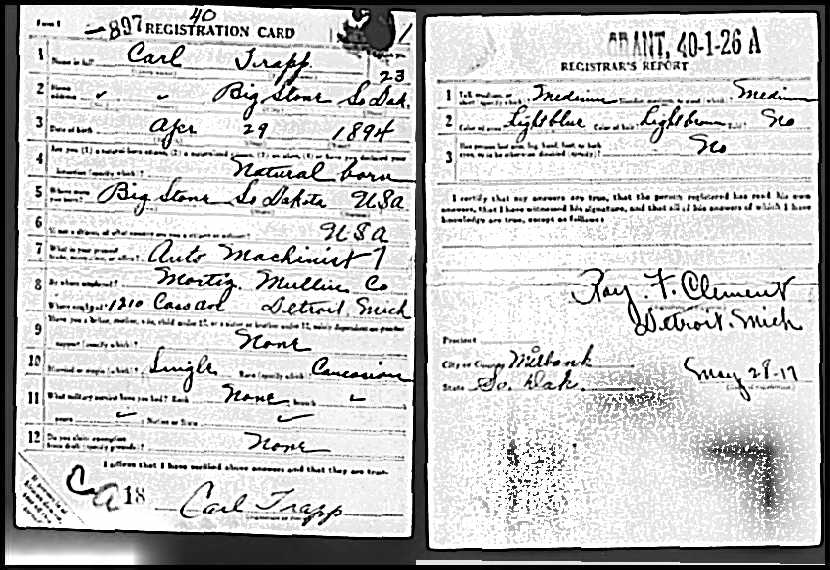 Form 1 897 40 REGISTRATION CARD
1 Name in full Carl Trapp 23
2 Home address Big Stone So Dak.
3 Date of birth Apr 29 1894
4 Are you (1) a natural born citizen, (2) a naturalized citizen, (3) an alien, (4) or have you declared your
intention (specify which)? Natural born
5 Where were you born? Big Stone So Dakota USA
6 If not a citizen, of what country are you a citizen or subject? USA
7 What is your present trade, occupation, or office? Auto Machinist 7
8 By whom employed? Mullin Co
Where employed? 1210 Detroit, Mich
9 Have you a father, mother, wife, child under 12, or a sister or brother under 12, solely dependent on you for
support (specify which)? None
10 Married or single (which)? Single Race (specify which)? Caucasian
11 What military service have you had? Rank None branch
years Nation or State
12 Do you claim exemption from draft (specify grounds)? None
I affirm that I have verified above answers and that they are true.
18 Carl Trapp
GRANT, 40-1-26 A
REGISTRAR'S REPORT
1 Tall, medium, or short (specify which)? Medium Slender, medium, or stout (which)? Medium
2 Color of eyes Light blue Color of hair Light brown Bald? No
3 Has person lost arm, leg, hand, foot, or both eyes, or is he otherwise disabled (specify)? No
I certify that my answers are true, that the person registered has read his own
answers, that I have witnessed his signature, and that all of his answers of which I have
knowledge are true, except as follows:
Ray. F. Clement
Detroit. Mich
Precinct
City or County Milbank
State So. Dak. May 29-17